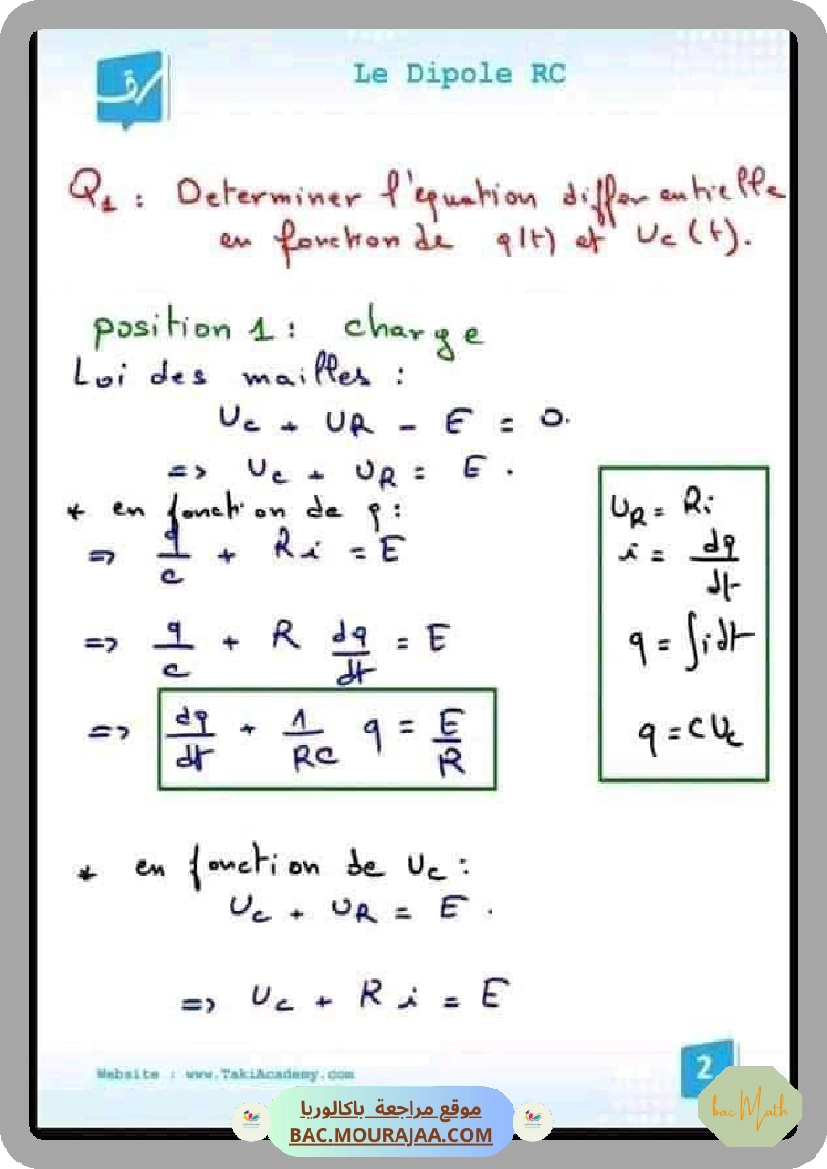 Le Dipole RC
Q1 : Determiner l'equation differentielle
en fonction de q(t) et Uc(t).
position 1 : charge
Loi des mailles :
Uc + UR - E = 0.
=> Uc + UR = E .
* en fonction de q :
=> q/c + Ri = E
=> q/c + R dq/dt = E
=> dq/dt + 1/RC q = E/R
UR = Ri
i = dq/dt
q = ∫idt
q = CUc
* en fonction de Uc :
Uc + UR = E .
=> Uc + Ri = E
Website : www.TakiAcademy.com
2
bac Math
موقع مراجعة باكالوريا
BAC.MOURAJAA.COM